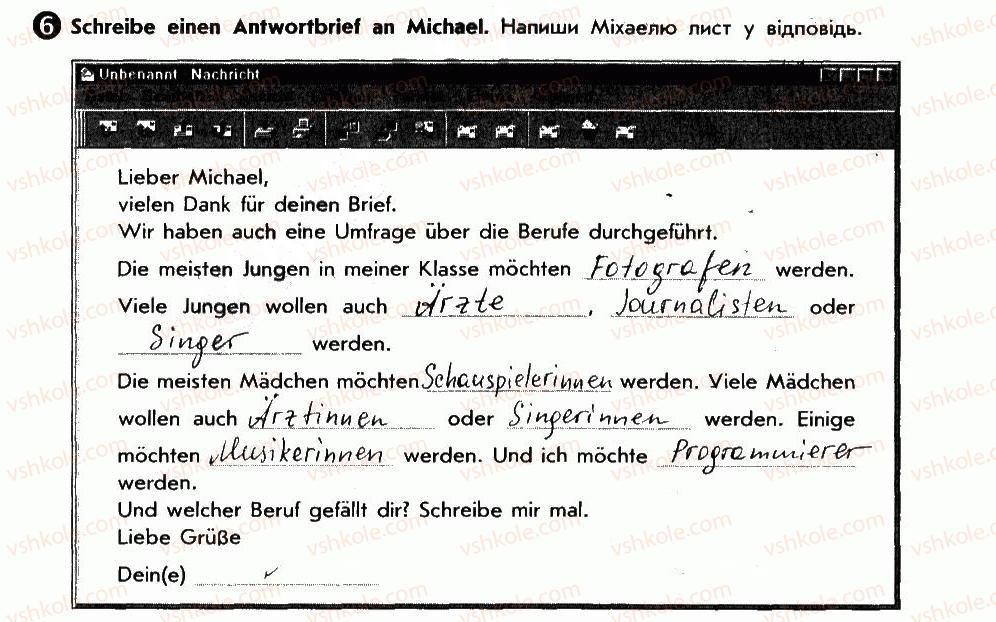 6 Schreibe einen Antwortbrief an Michael. Напиши Міхаелю лист у відповідь.
Unbenannt Nachricht
Lieber Michael,
vielen Dank für deinen Brief.
Wir haben auch eine Umfrage über die Berufe durchgeführt.
Die meisten Jungen in meiner Klasse möchten Fotografen werden.
Viele Jungen wollen auch Ärzte, Journalisten oder
Singer werden.
Die meisten Mädchen möchten Schauspielerinnen werden. Viele Mädchen
wollen auch Ärztinnen oder Singerinnen werden. Einige
möchten Musikerinnen werden. Und ich möchte Programmierer
werden.
Und welcher Beruf gefällt dir? Schreibe mir mal.
Liebe Grüße
Dein(e)
vshkole.com